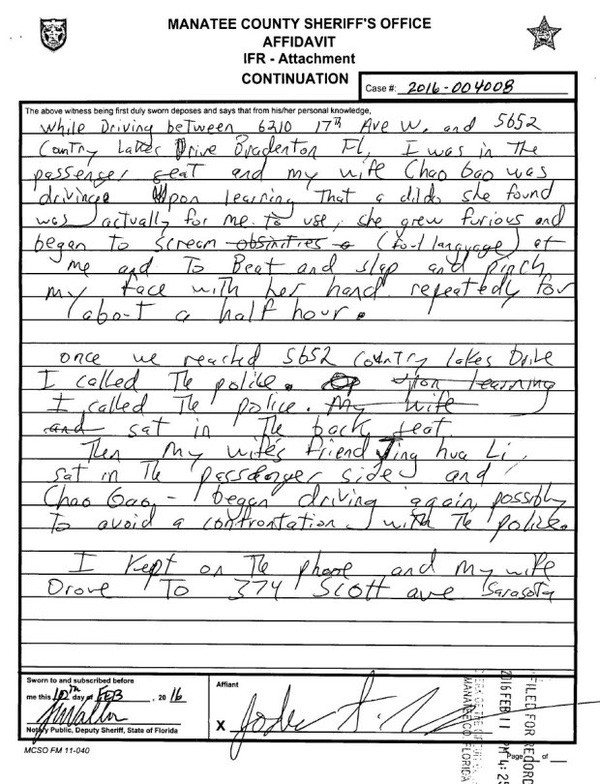 MANATEE COUNTY SHERIFF'S OFFICE
AFFIDAVIT
IFR - Attachment
CONTINUATION
Case #: 2016-004008
The above witness being first duly sworn deposes and says that from his/her personal knowledge,
while Driving between 6210 17th Ave W. and 5652
Country Lakes Drive Bradenton FL, I was in the
passenger seat and my wife Chao Gao was
driving. Upon learning That a dildo she found
was actually for me to use, she grew furious and
began to scream obsinities (foul language) at
me and To Beat and slap and pinch
my face with her hand repeatedly for
about a half hour.
once we reached 5652 Country Lakes Drive
I called The police. upon learning
I called The police. My wife
and sat in The back seat.
Then my wife's friend Jing hua Li,
sat in The passenger side, and
Chao Gao - began driving again, possibly
To avoid a confrontation with The police.
I Kept on The phone and my wife
Drove To 374 Scott ave Sarasota
Sworn to and subscribed before
me this 10th day of FEB, 2016
Notary Public, Deputy Sheriff, State of Florida
Affiant
X
MCSO FM 11-040
Page of
FILED FOR RECORD
2016 FEB 11 PM 4: 25
MANATEE CO. FLORIDA